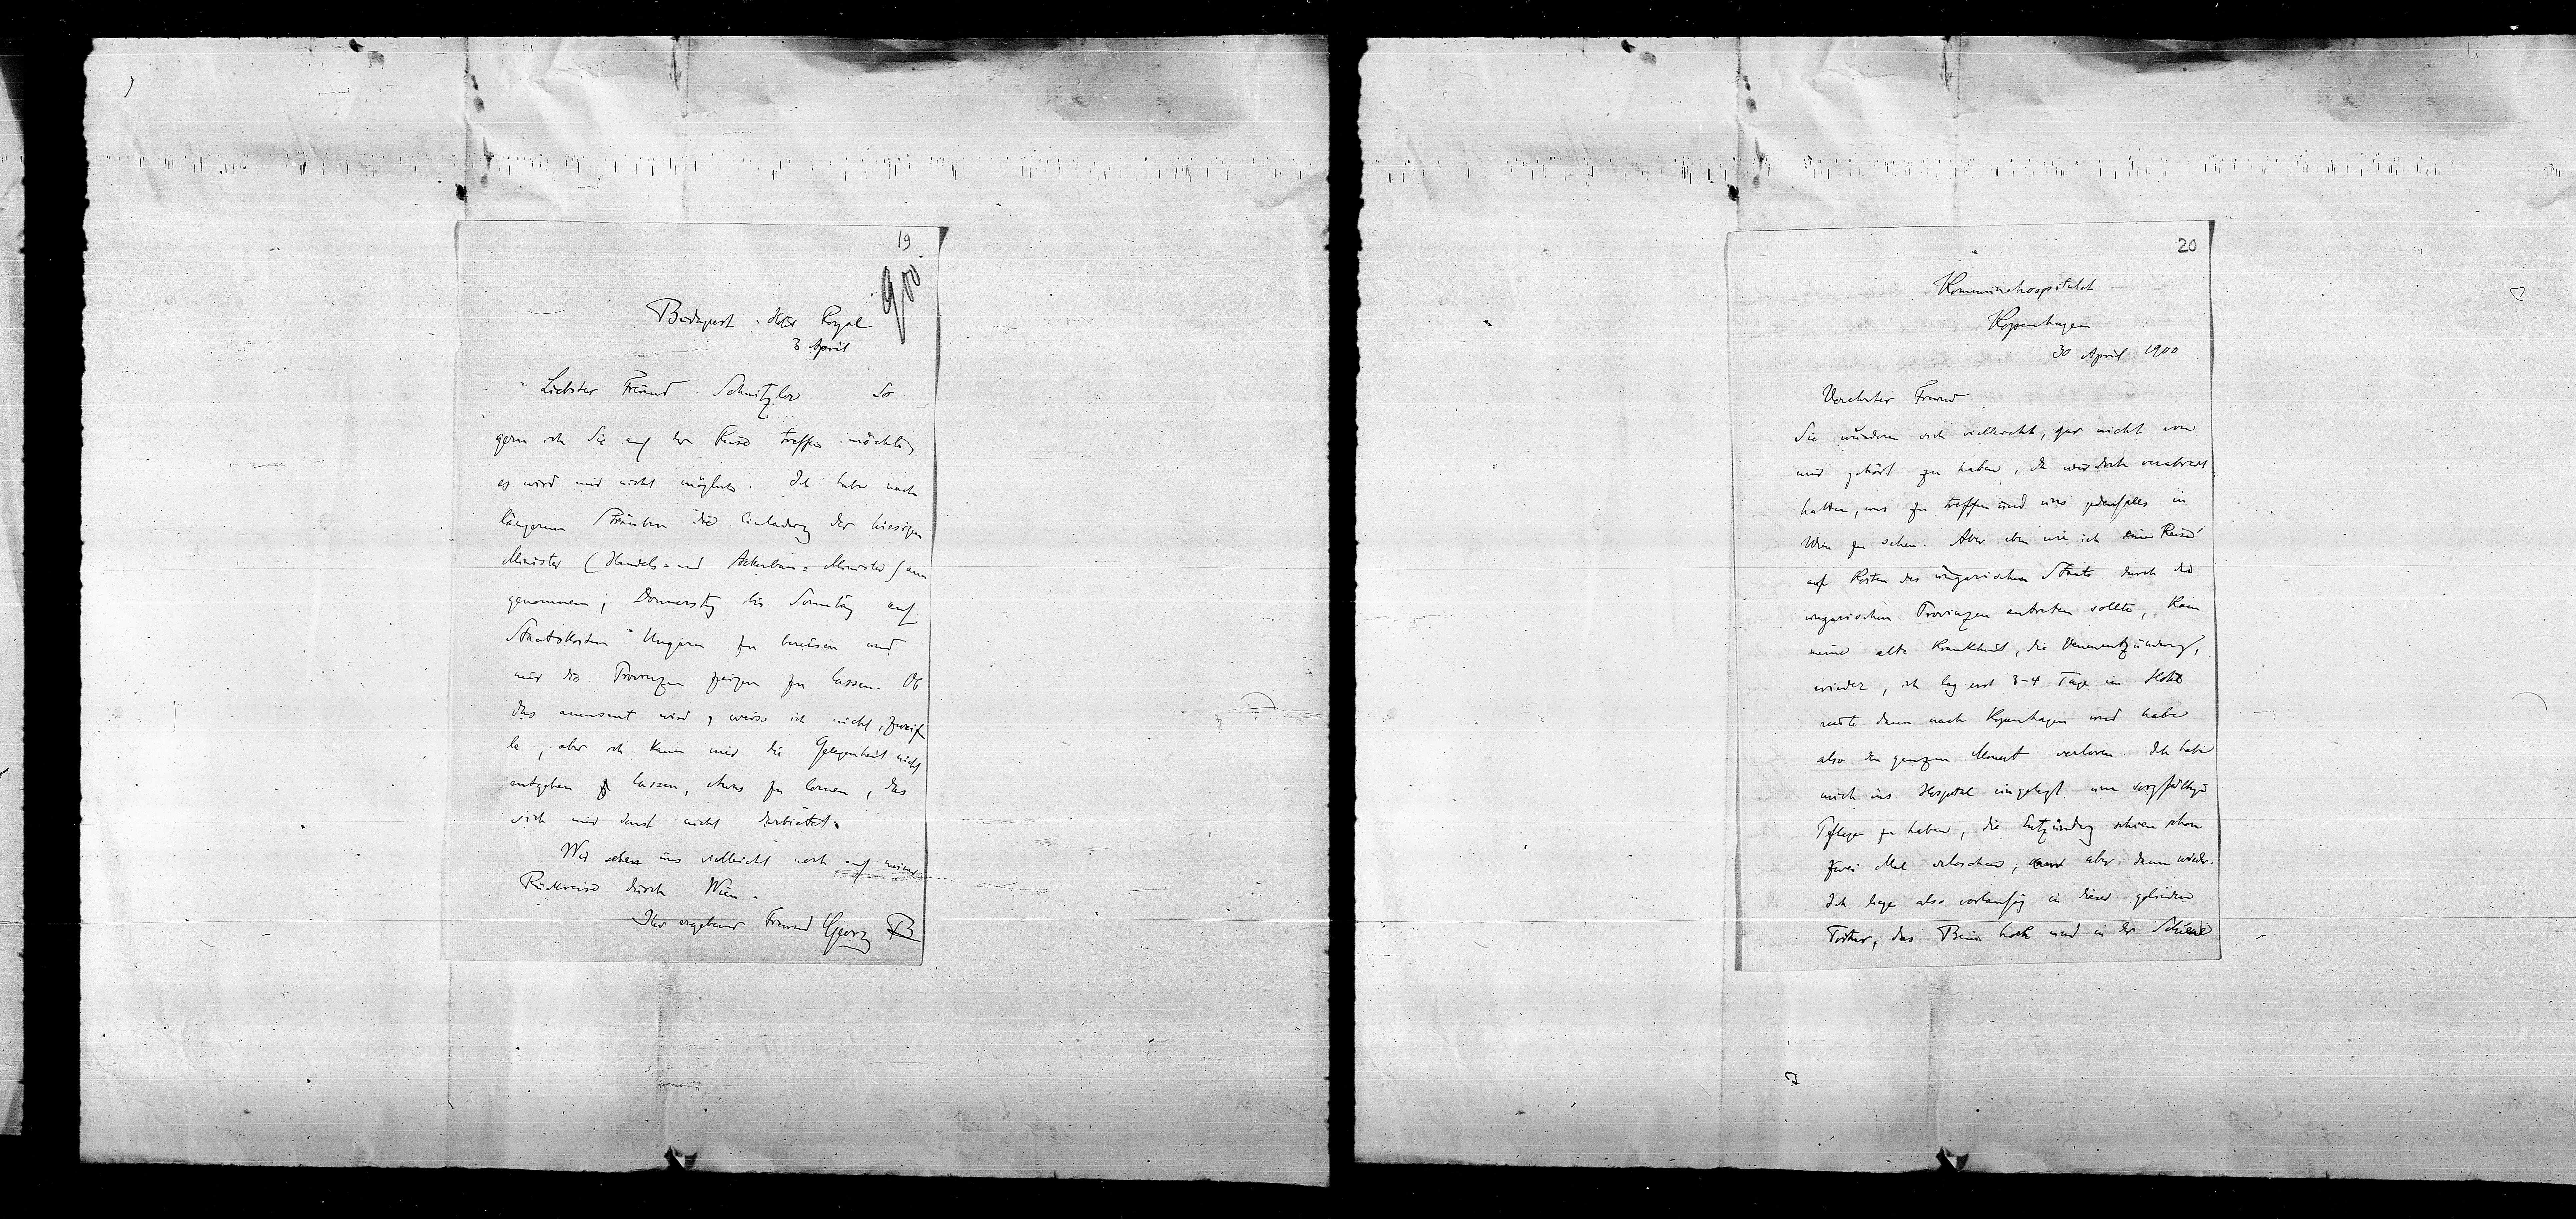 19
900
Budapest. Hotel Royal
3 April
Liebster Freund Schnitzler So
gern ich Sie auf der Reise treffen möchte,
es wird mir nicht möglich. Ich habe nach
längerem Sträuben die Einladung der hiesigen
Minister (Handels- und Ackerbau-Minister) an
genommen, Donnerstag bis Sonntag auf
Staatskosten Ungarn zu bereisen und
mir die Provinzen zeigen zu lassen. Ob
das amusant wird, weiss ich nicht, zweif
le, aber ich kann mir die Gelegenheit nicht
entgehen zu lassen, etwas zu lernen, das
sich mir sonst nicht darbietet.
Wir sehen uns vielleicht noch auf meiner
Rückreise durch Wien.
Ihr ergebener Freund Georg B
20
Kommunehospitalet
Kopenhagen
30 April 1900
Verehrter Freund
Sie wundern sich vielleicht, gar nicht von
mir gehört zu haben, da wir doch verabredet
hatten, uns zu treffen und uns jedenfalls in
Wien zu sehen. Aber eben wie ich eine Reise
auf Kosten des ungarischen Staats durch die
ungarischen Provinzen antreten sollte, kam
meine alte Krankheit, die Venenentzündung,
wieder, ich lag erst 3-4 Tage im Hotel
reiste dann nach Kopenhagen und habe
also den ganzen Monat verloren. Ich habe
mich ins Hospital eingelegt um sorgfältige
Pflege zu haben, die Entzündung schien schon
zwei Mal erloschen, kam aber dann wieder.
Ich liege also vorläufig in dieser gelinden
Tortur, das Bein hoch und in der Schiene